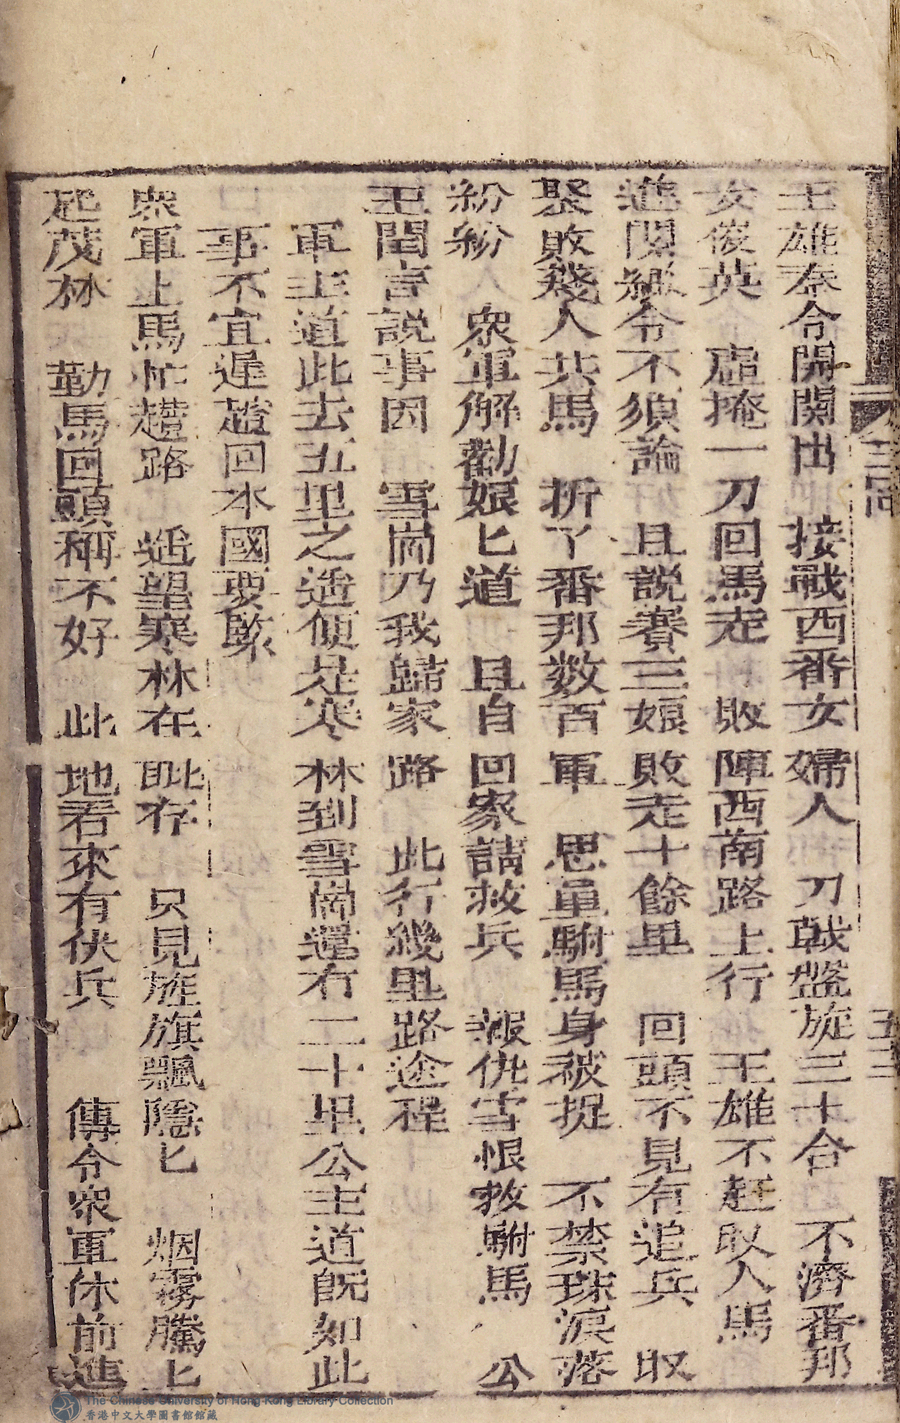 王雄奉令開關出　接戰西番女婦人　刀戟盤旋三十合　不濟番邦
女俊英　虛掩一刀回馬走　敗陣西南路上行　王雄不赶收人馬
進關繳令不須論　且說賽三娘敗走十餘里　回頭不見有追兵　収
聚敗殘人共馬　折了番邦数百軍　思量駙馬身被捉　不禁珠淚落
紛紛　衆軍解勸娘匕道　且自回家請救兵　報仇雪恨救駙馬　公
主聞言說事因　雪崗乃我歸家路　此行幾里路途程
軍士道此去五里之遥便是寒林到雪崗還有二十里公主道旣如此
事不宜遲趲回本國要緊
衆軍上馬忙趲路　遥望寒林在眦存　只見旌旗飄隱匕　烟霧騰上
起茂林　勒馬回頭稱不好　此地看來有伏兵　傳令衆軍休前進
三回
五三
The Chinese University of Hong Kong Library Collection
香港中文大學圖書館館藏